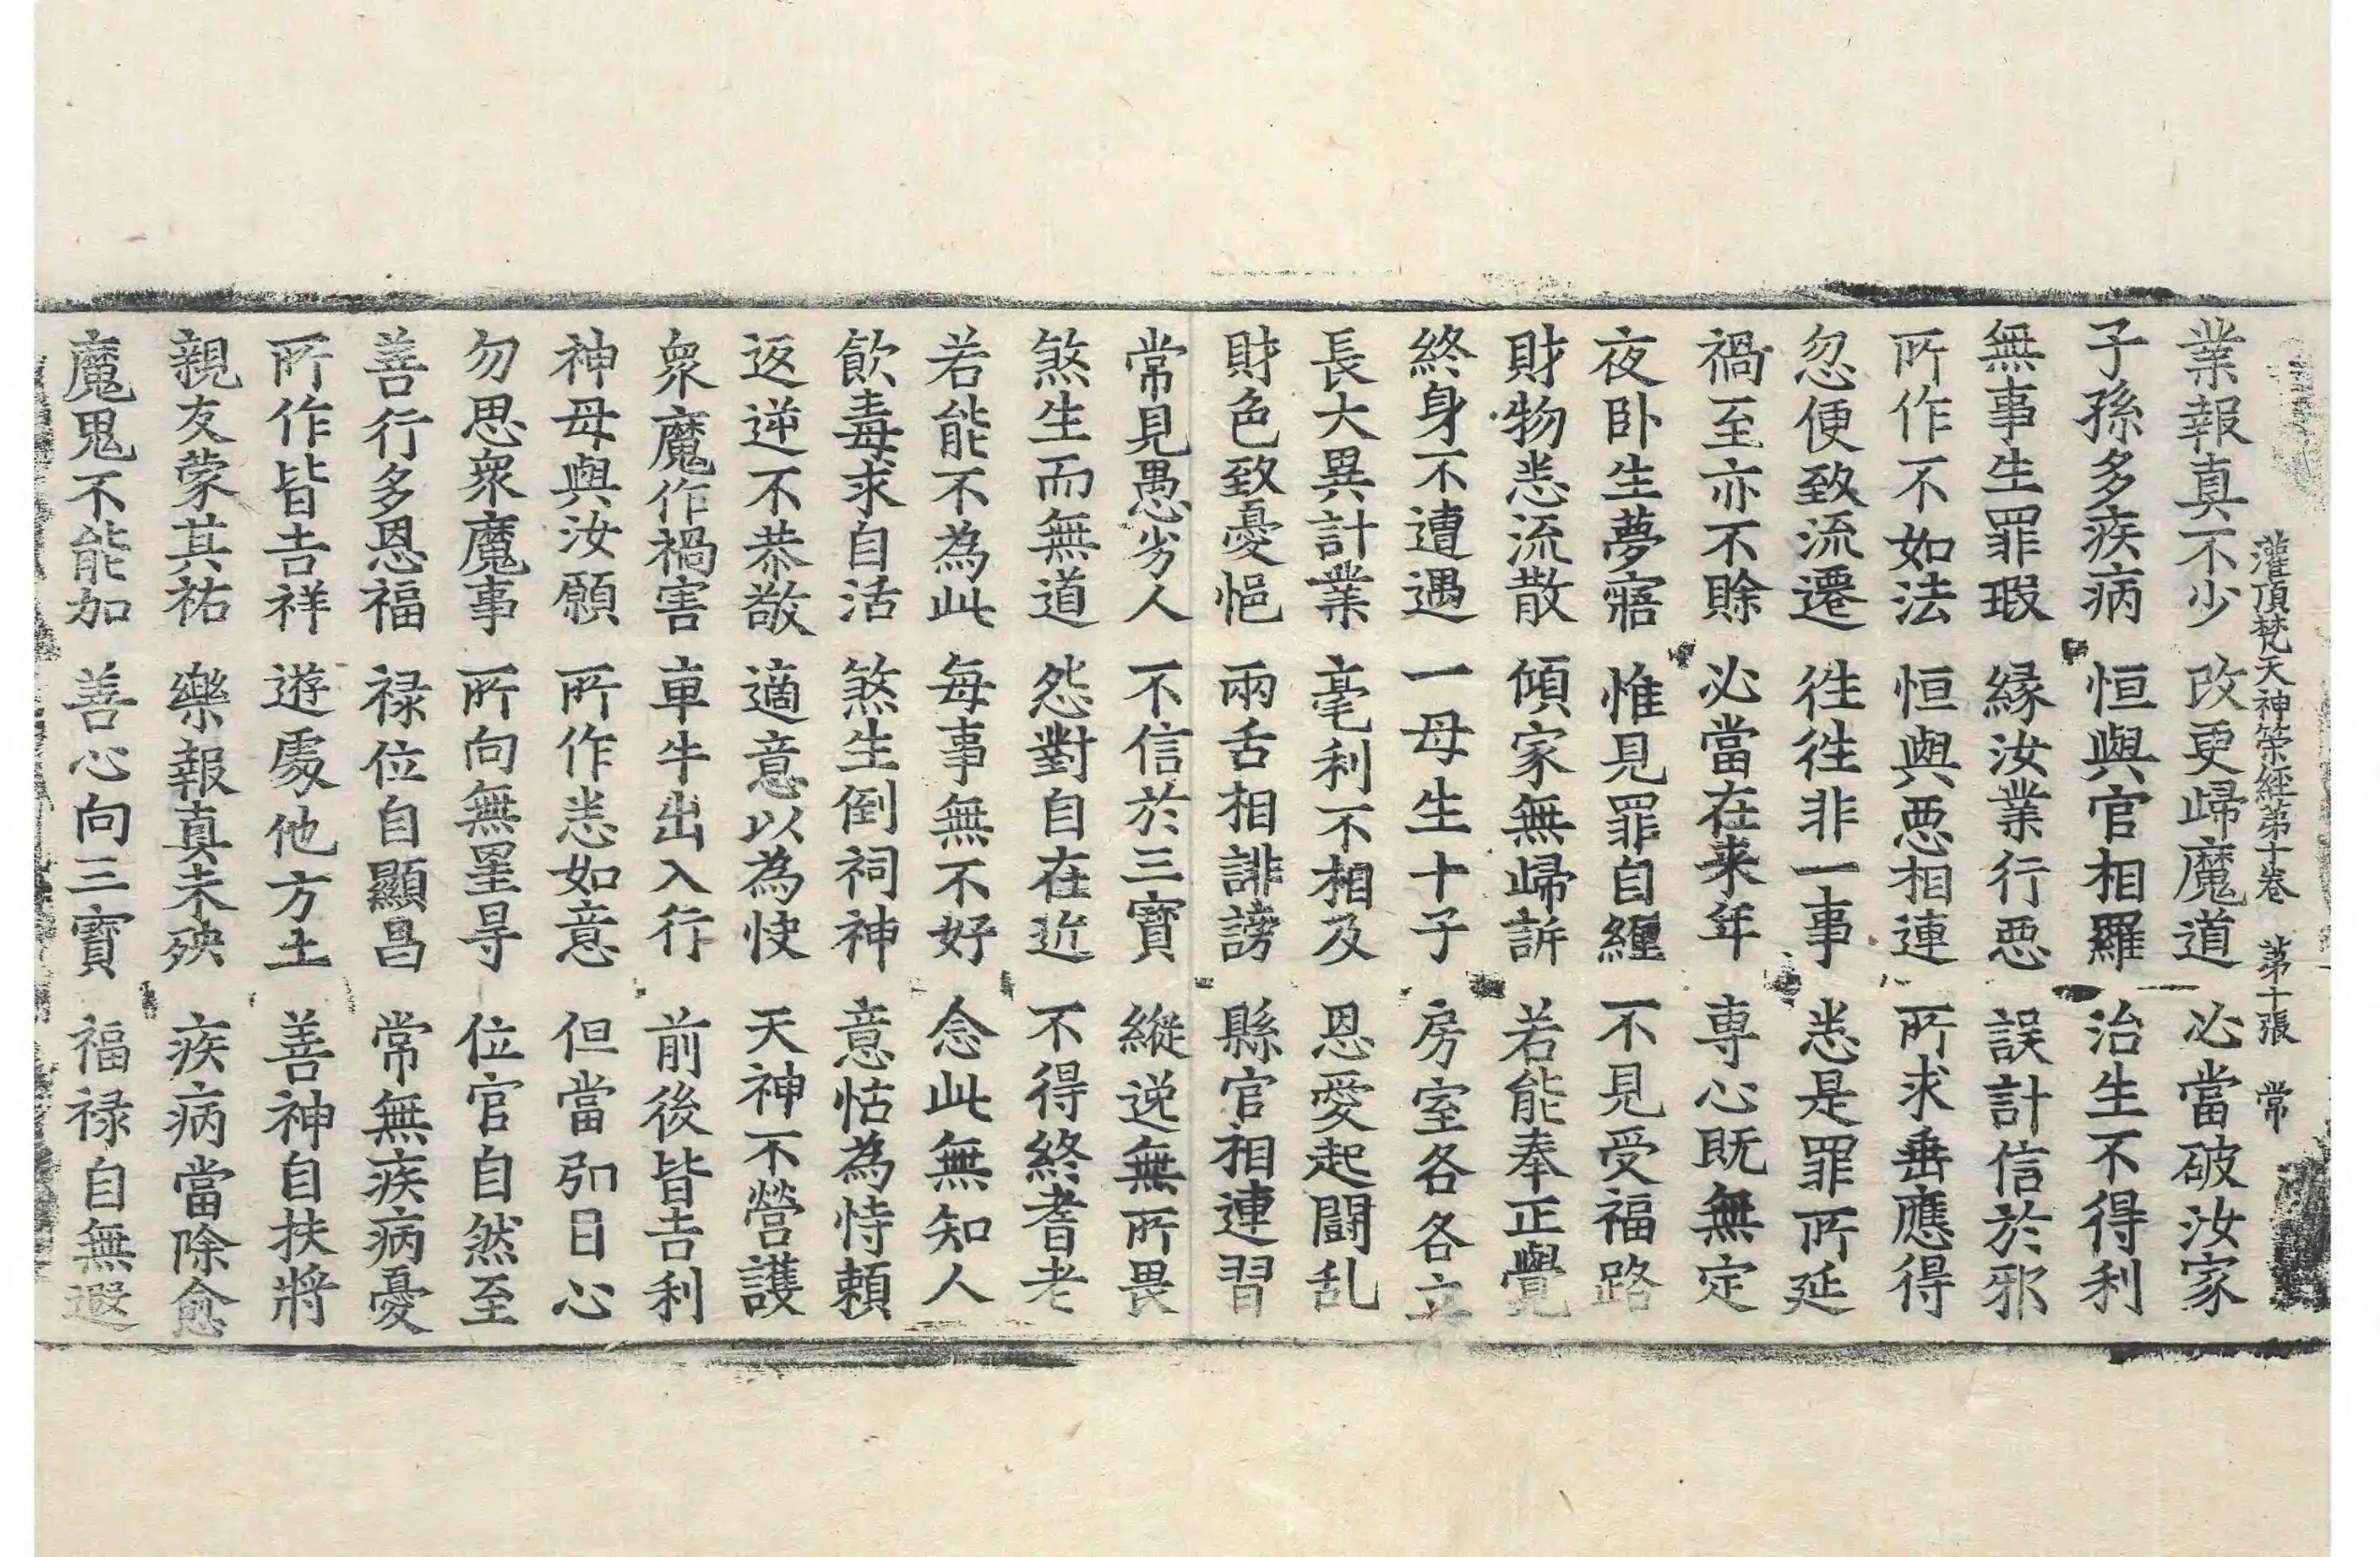 灌頂梵天神策經第十卷　第十張　常
業報真不少　改更歸魔道　必當破汝家
子孫多疾病　恒與官相羅　治生不得利
無事生罪瑕　緣汝業行惡　誤計信於邪
所作不如法　恒與惡相連　所求垂應得
忽便致流遷　往往非一事　悉是罪所延
禍至亦不賒　必當在来年　専心既無定
夜卧生夢寤　惟見罪自纏　不見受福路
財物悉流散　傾家無歸訴　若能奉正覺
終身不遭遇　一母生十子　房室各各立
長大異計業　毫利不相及　恩愛起鬪乱
財色致憂悒　兩舌相誹謗　縣官相連習
常見愚劣人　不信於三寶　縱逸無所畏
煞生而無道　怨對自在近　不得終耆老
若能不為此　每事無不好　念此無知人
飲毒求自活　煞生倒祠神　意怙為恃賴
返逆不恭敬　適意以為快　天神不營護
衆魔作禍害　車牛出入行　前後皆吉利
神母與汝願　所作悉如意　但當剋日心
勿思衆魔事　所向無罣㝵　位官自然至
善行多恩福　禄位自顯昌　常無疾病憂
所作皆吉祥　遊處他方土　善神自扶將
親友蒙其祐　樂報真未殃　疾病當除愈
魔鬼不能加　善心向三寶　福禄自無遐